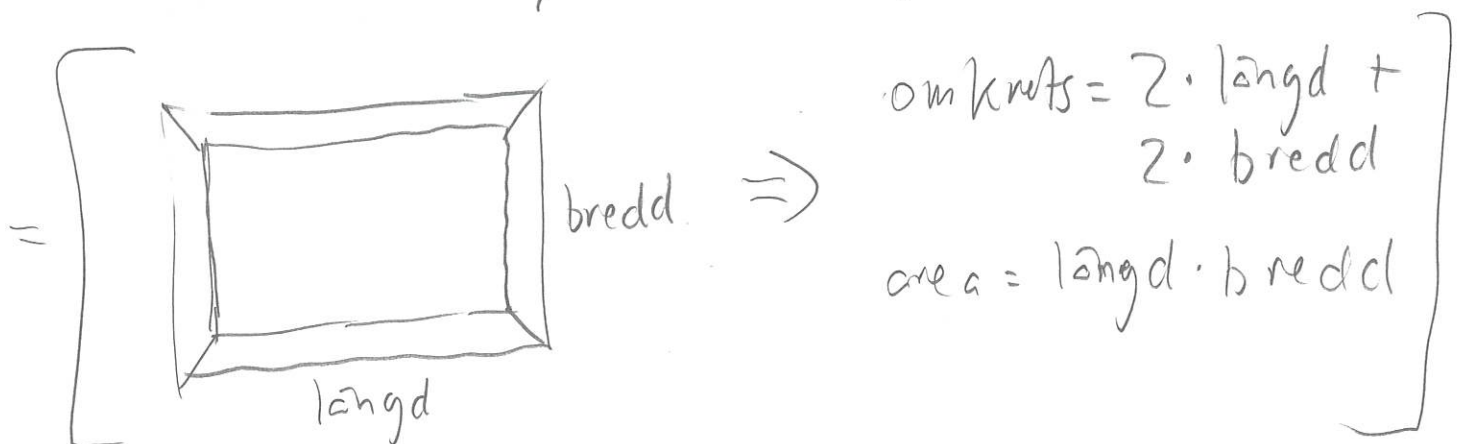 =
bredd
längd
=>
omkrets = 2 · längd +
2 · bredd
area = längd · bredd